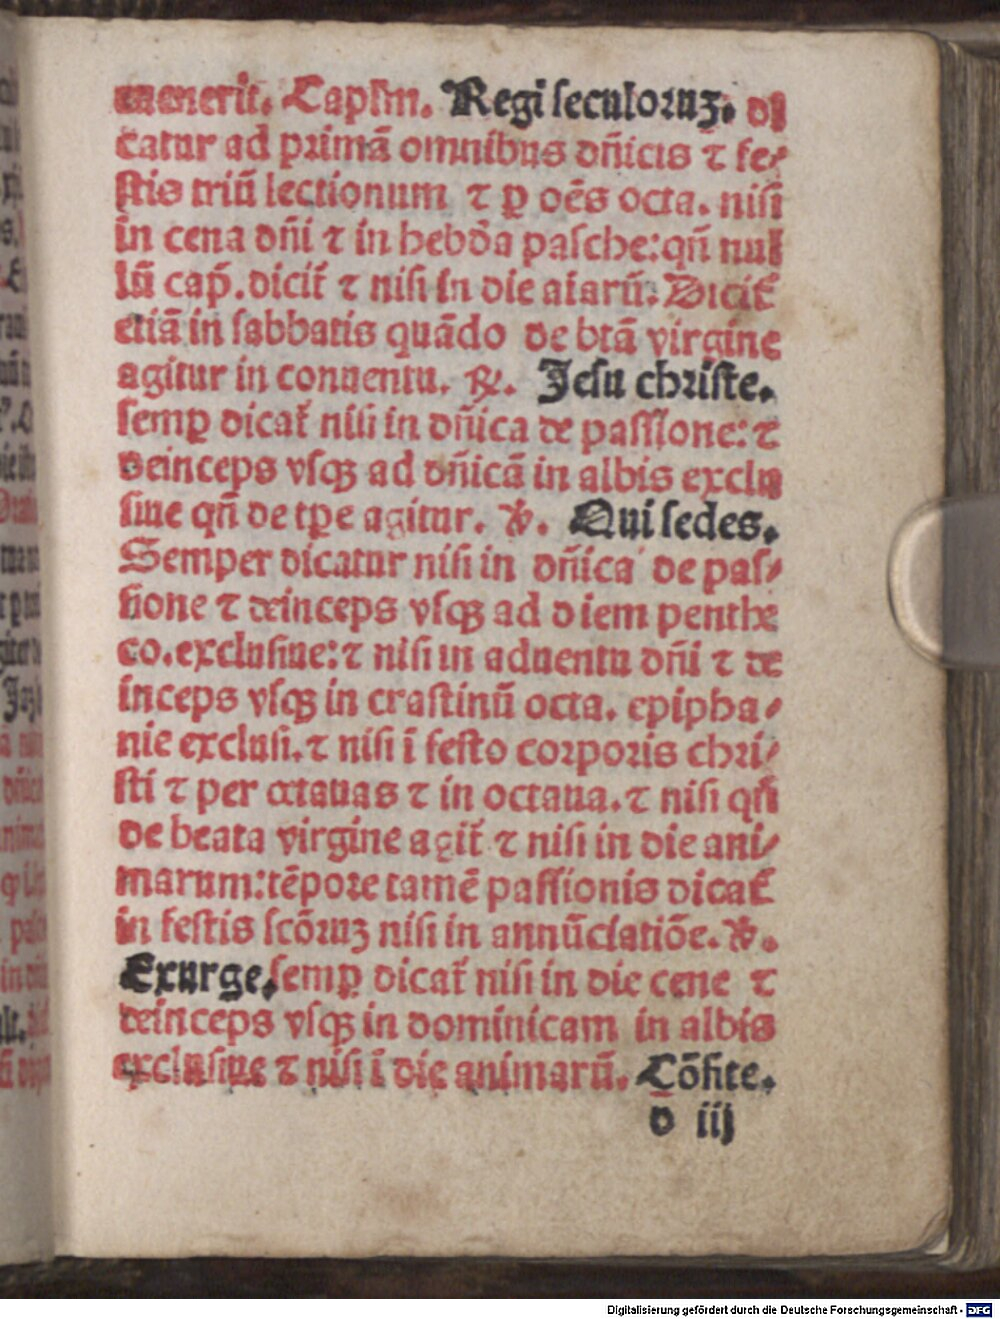 euenerit. Caplm̄. Regi seculoruꝫ. di
catur ad primā omnibus dn̄icis ⁊ fe⸗
stis triū lectionum ⁊ ꝑ oēs octa. nisi
in cena dn̄i ⁊ in hebdo̅a pasche: qn̄ nul
lū cap̄. dicit̄ ⁊ nisi in die aīarū. Dicit̄
etiā in sabbatis quādo de btā virgine
agitur in conuentu. ℞. Jesu christe.
semꝑ dicat̄ nisi in dn̄ica de passione: ⁊
deinceps vsqꝫ ad dn̄icā in albis exclu
siue qn̄ de tꝑe agitur. ℣. Qui sedes.
Semper dicatur nisi in dn̄ica de pas⸗
sione ⁊ deinceps vsqꝫ ad diem penthe
co. exclusiue: ⁊ nisi in aduentu dn̄i ⁊ de
inceps vsqꝫ in crastinū octa. epipha⸗
nie exclusi. ⁊ nisi ī festo corporis chri⸗
sti ⁊ per octauas ⁊ in octaua. ⁊ nisi qn̄
de beata virgine agit̄ ⁊ nisi in die ani⸗
marum: tēpore tamē passionis dicat̄
in festis scōruꝫ nisi in annūciatiōe. ℣.
Exurge. semꝑ dicat̄ nisi in die cene ⁊
deinceps vsqꝫ in dominicam in albis
exclusiue ⁊ nisi ī die animarū. Cōfite.
d iij
Digitalisierung gefördert durch die Deutsche Forschungsgemeinschaft - DFG